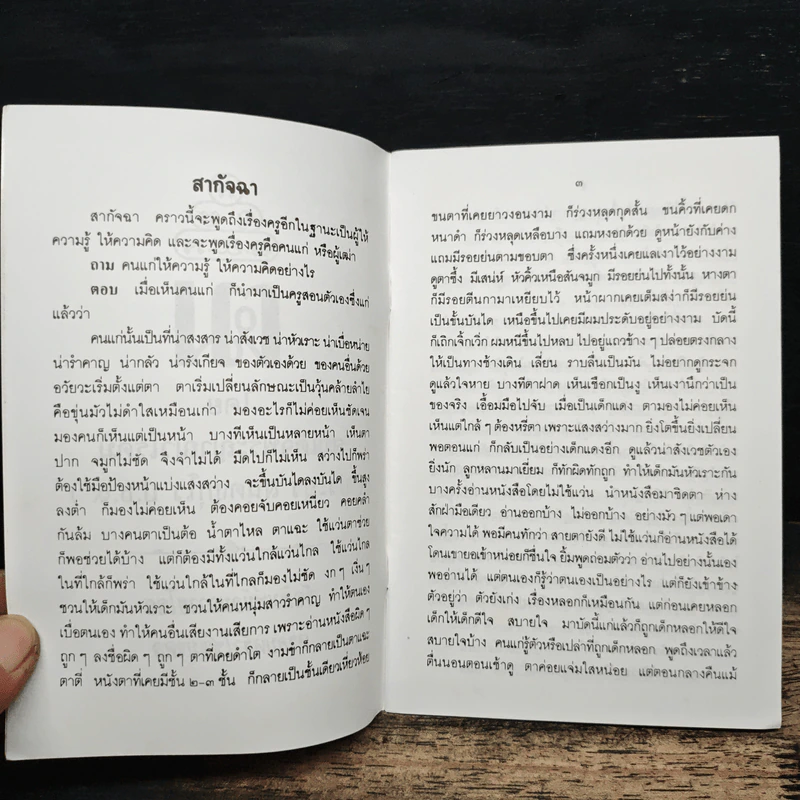 สากัจฉา
สากัจฉา คราวนี้จะพูดถึงเรื่องครูอีกในฐานะเป็นผู้ให้
ความรู้ ให้ความคิด และจะพูดเรื่องครูคือคนแก่ หรือผู้เฒ่า
ถาม คนแก่ให้ความรู้ ให้ความคิดอย่างไร
ตอบ เมื่อเห็นคนแก่ ก็นำมาเป็นครูสอนตัวเองซึ่งแก่
แล้วว่า
คนแก่นั้นเป็นที่น่าสงสาร น่าสังเวช น่าหัวเราะ น่าเบื่อหน่าย
น่ารำคาญ น่ากลัว น่ารังเกียจ ของตัวเองด้วย ของคนอื่นด้วย
อวัยวะเริ่มตั้งแต่ตา ตาเริ่มเปลี่ยนลักษณะเป็นวุ้นคล้ายลำไย
คือขุ่นมัวไม่ดำใสเหมือนเก่า มองอะไรก็ไม่ค่อยเห็นชัดเจน
มองคนก็เห็นแต่เป็นหน้า บางทีเห็นเป็นหลายหน้า เห็นตา
ปาก จมูกไม่ชัด จึงจำไม่ได้ มืดไปก็ไม่เห็น สว่างไปก็พร่า
ต้องใช้มือป้องหน้าแบ่งแสงสว่าง จะขึ้นบันไดลงบันได ขึ้นสูง
ลงต่ำ ก็มองไม่ค่อยเห็น ต้องคอยจับคอยเหนี่ยว คอยคลำ
กันล้ม บางคนตาเป็นต้อ น้ำตาไหล ตาแฉะ ใช้แว่นตาช่วย
ก็พอช่วยได้บ้าง แต่ก็ต้องมีทั้งแว่นใกล้แว่นไกล ใช้แว่นไกล
ในที่ใกล้ก็พร่า ใช้แว่นใกล้ในที่ไกลก็มองไม่ชัด งก ๆ เงิ่น ๆ
ชวนให้เด็กมันหัวเราะ ชวนให้คนหนุ่มสาวรำคาญ ทำให้ตนเอง
เบื่อตนเอง ทำให้คนอื่นเสียงานเสียการ เพราะอ่านหนังสือผิด ๆ
ถูก ๆ ลงชื่อผิด ๆ ถูก ๆ ตาที่เคยดำโต งามขำก็กลายเป็นตาแฉะ
ตาตี่ หนังตาที่เคยมีชั้น ๒-๓ ชั้น ก็กลายเป็นชั้นเดียวเหี่ยวห้อย
๓
ขนตาที่เคยยาวงอนงาม ก็ร่วงหลุดกุดสั้น ขนคิ้วที่เคยดก
หนาดำ ก็ร่วงหลุดเหลือบาง แถมหงอกด้วย ดูหน้ายังกับค่าง
แถมมีรอยย่นตามขอบตา ซึ่งครั้งหนึ่งเคยแลเงาไว้อย่างงาม
ดูตาซึ้ง มีเสน่ห์ หัวคิ้วเหนือสันจมูก มีรอยย่นไปทั้งนั้น หางตา
ก็มีรอยตีนกามาเหยียบไว้ หน้าผากเคยเต็มสง่าก็มีรอยย่น
เป็นชั้นบันได เหนือขึ้นไปเคยมีผมประดับอยู่อย่างงาม บัดนี้
ก็เถิกเจิ้กเวิ่ก ผมหนีขึ้นไปหลบ ไปอยู่แถวข้าง ๆ ปล่อยตรงกลาง
ให้เป็นทางช้างเดิน เลี่ยน ราบลื่นเป็นมัน ไม่อยากดูกระจก
ดูแล้วใจหาย บางทีตาฝาด เห็นเชือกเป็นงู เห็นเงานึกว่าเป็น
ของจริง เอื้อมมือไปจับ เมื่อเป็นเด็กแดง ตามองไม่ค่อยเห็น
เห็นแต่ใกล้ ๆ ต้องหรี่ตา เพราะแสงสว่างมาก ยิ่งโตขึ้นยิ่งเปลี่ยน
พอตอนแก่ ก็กลับเป็นอย่างเด็กแดงอีก ดูแล้วน่าสังเวชตัวเอง
ยิ่งนัก ลูกหลานมาเยี่ยม ก็ทักผิดทักถูก ทำให้เด็กมันหัวเราะกัน
บางครั้งอ่านหนังสือโดยไม่ใช้แว่น นำหนังสือมาชิดตา ห่าง
สักฝ่ามือเดียว อ่านออกบ้าง ไม่ออกบ้าง อย่างมัว ๆ แต่พอเดา
ใจความได้ พอมีคนทักว่า สายตายังดี ไม่ใช้แว่นก็อ่านหนังสือได้
โดนเขายอเข้าหน่อยก็ชื่นใจ ยิ้มพูดถ่อมตัวว่า อ่านไปอย่างนั้นเอง
พออ่านได้ แต่ตนเองก็รู้ว่าตนเองเป็นอย่างไร แต่ก็ยังเข้าข้าง
ตัวอยู่ว่า ตัวยังเก่ง เรื่องหลอกก็เหมือนกัน แต่ก่อนเคยหลอก
เด็กให้เด็กดีใจ สบายใจ มาบัดนี้แก่แล้วก็ถูกเด็กหลอกให้ดีใจ
สบายใจบ้าง คนแก่รู้ตัวหรือเปล่าที่ถูกเด็กหลอก พูดถึงเวลาแล้ว
ตื่นนอนตอนเช้าดู ตาค่อยแจ่มใสหน่อย แต่ตอนกลางคืนแม้